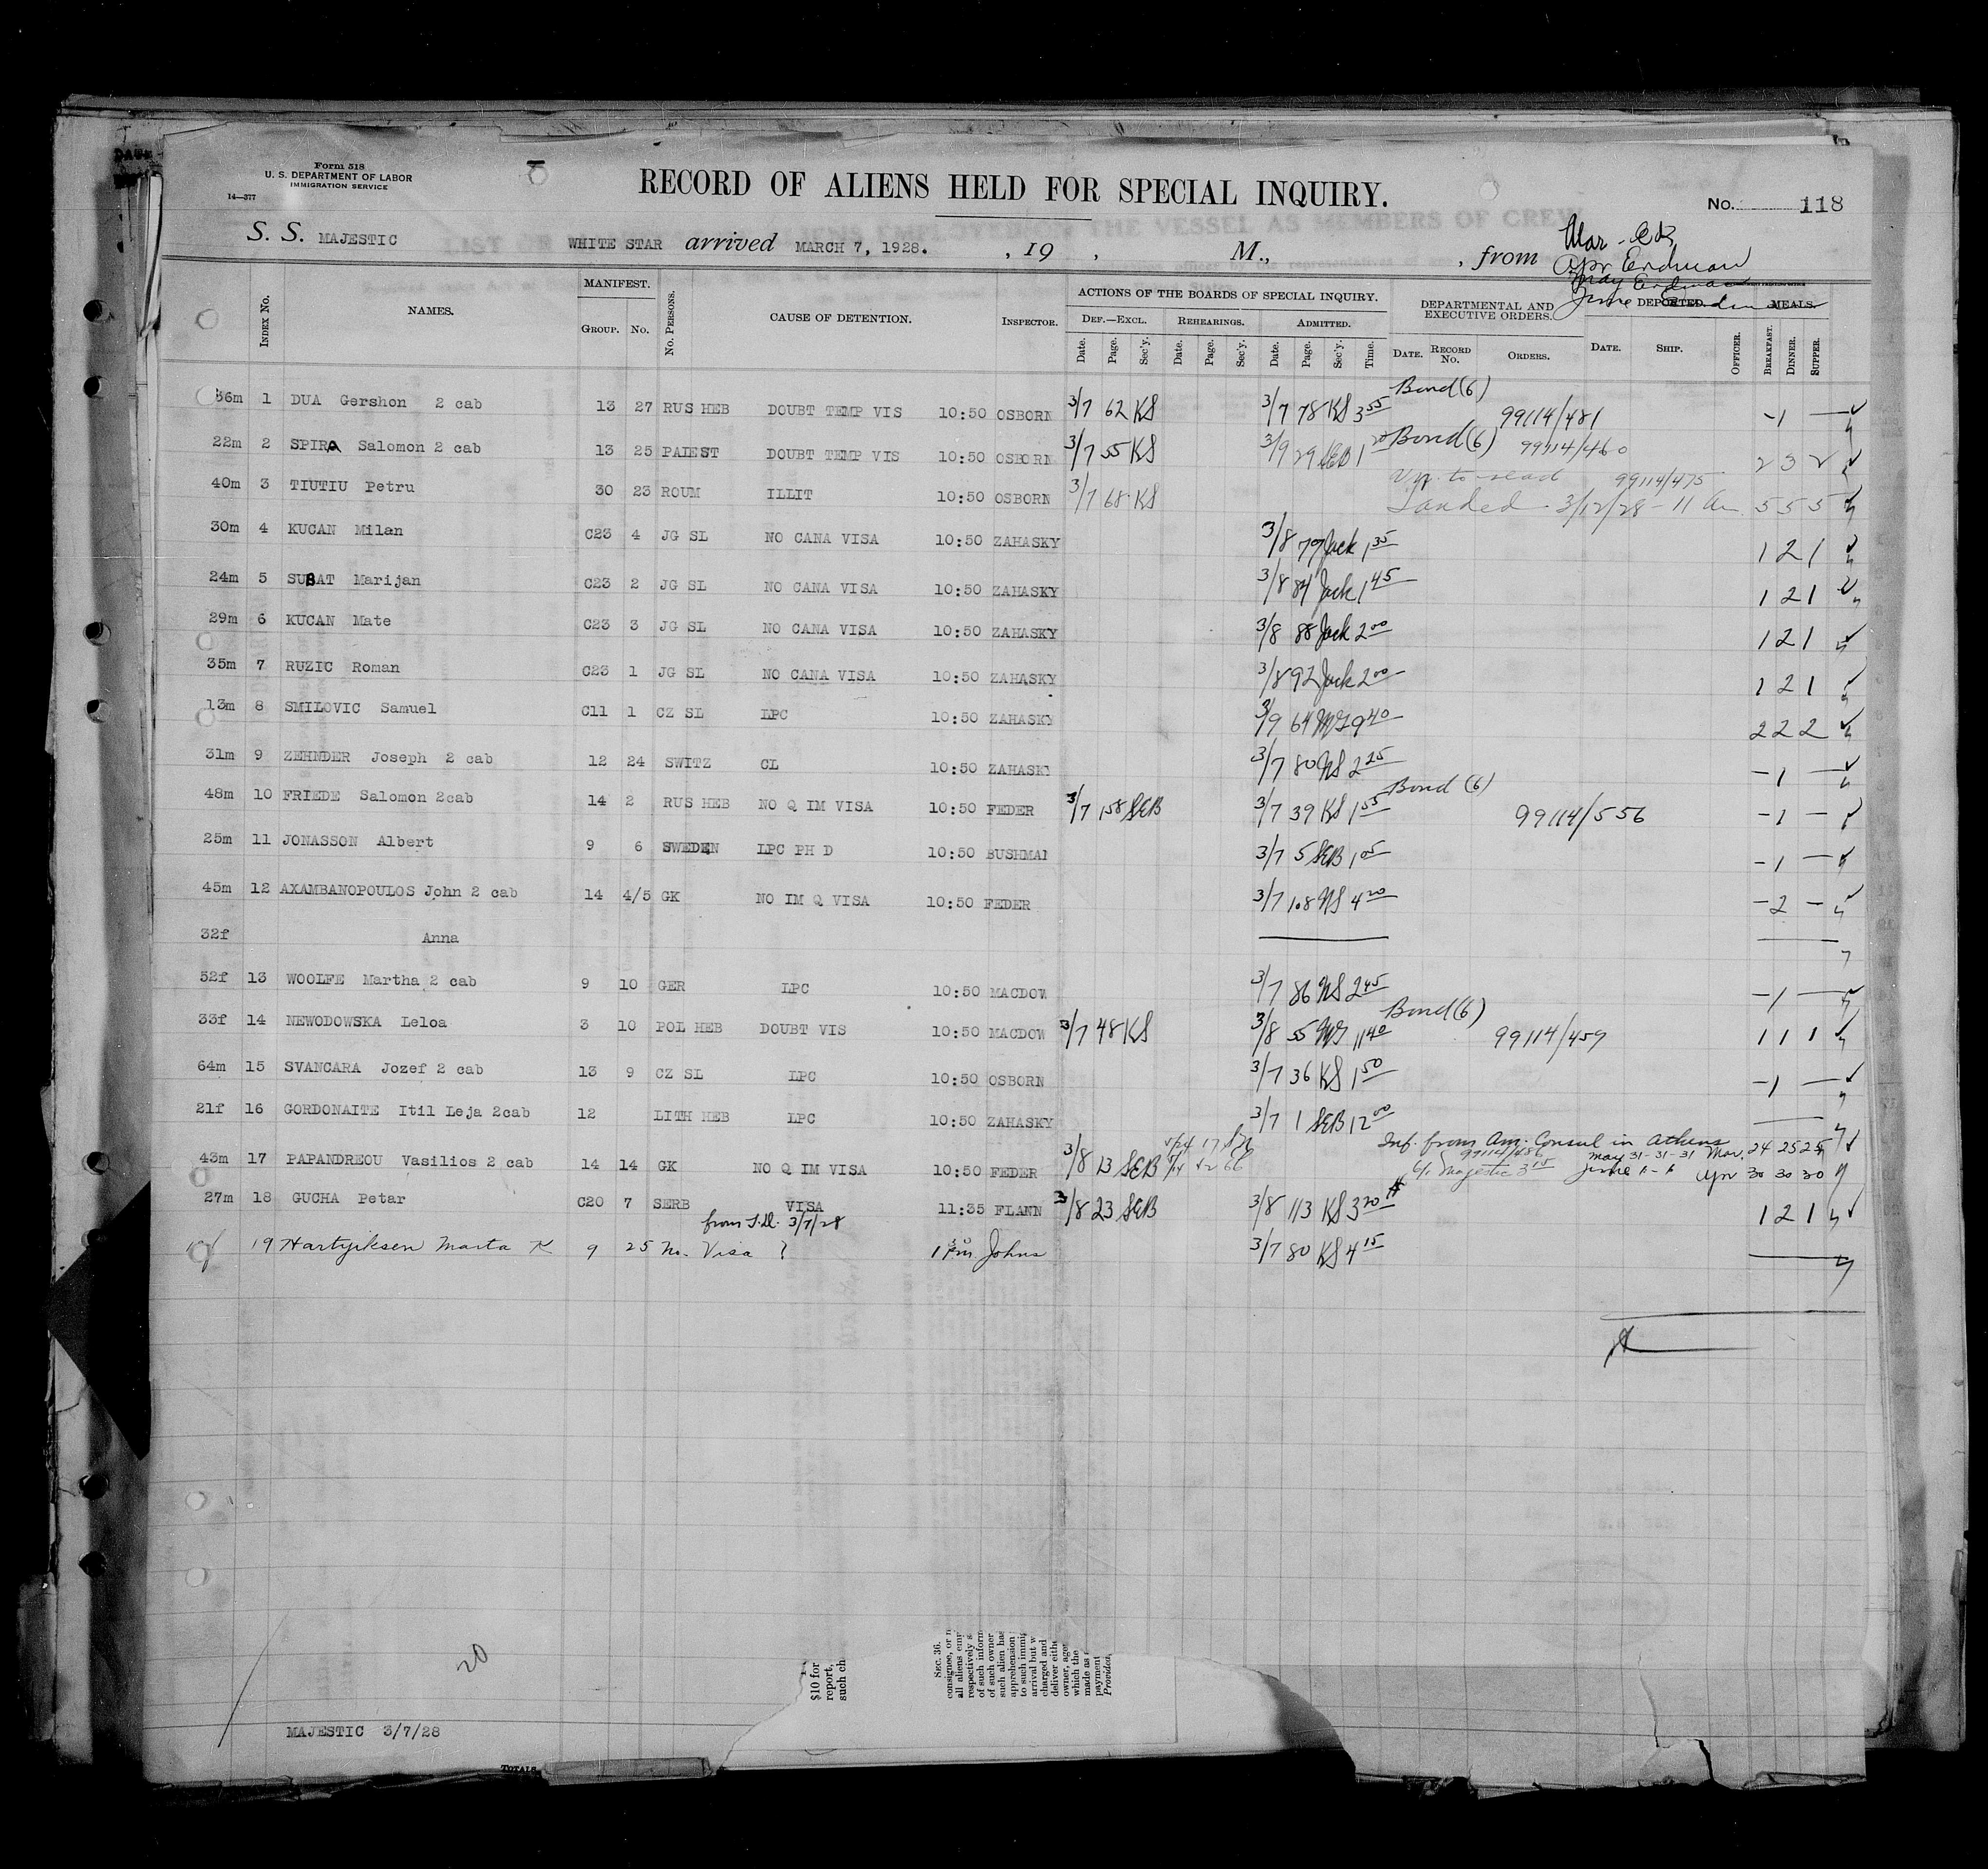 Form 518
U. S. DEPARTMENT OF LABOR
IMMIGRATION SERVICE
14—377
RECORD OF ALIENS HELD FOR SPECIAL INQUIRY.
No. 118
S. S. MAJESTIC WHITE STAR arrived MARCH 7, 1928. , 19 , M., , from
Apr Erdman
May Erdman
June Erdman
INDEX No. NAMES. MANIFEST. GROUP. No. No. PERSONS. CAUSE OF DETENTION. INSPECTOR. ACTIONS OF THE BOARDS OF SPECIAL INQUIRY. DEF.—EXCL. REHEARINGS. ADMITTED. DEPARTMENTAL AND EXECUTIVE ORDERS. DEPORTED. MEALS.
Date. Page. Sec'y. Date. Page. Sec'y. Date. Page. Sec'y. Time. DATE. RECORD No. ORDERS. DATE. SHIP. OFFICER. BREAKFAST. DINNER. SUPPER.
36m 1 DUA Gershon 2 cab 13 27 RUS HEB DOUBT TEMP VIS 10:50 OSBORN 3/7 62 KS 3/7 78 KS 3 55 Bond (6) 99114/481 – 1 —
22m 2 SPIRA Salomon 2 cab 13 25 PALEST DOUBT TEMP VIS 10:50 OSBORN 3/7 55 KS 3/9 29 SEB 1 20 Bond (6) 99114/460 2 3 2
40m 3 TIUTIU Petru 30 23 ROUM ILLIT 10:50 OSBORN 3/7 68 KS 99114/475
Landed 3/12/28 - 11 am 5 5 5
30m 4 KUCAN Milan C23 4 JG SL NO CANA VISA 10:50 ZAHASKY 3/8 79 Jack 1 35 1 2 1
24m 5 SUBAT Marijan C23 2 JG SL NO CANA VISA 10:50 ZAHASKY 3/8 84 Jack 1 45 1 2 1
29m 6 KUCAN Mate C23 3 JG SL NO CANA VISA 10:50 ZAHASKY 3/8 88 Jack 2 00 1 2 1
35m 7 RUZIC Roman C23 1 JG SL NO CANA VISA 10:50 ZAHASKY 3/8 92 Jack 2 00 1 2 1
13m 8 SMILOVIC Samuel C11 1 CZ SL LPC 10:50 ZAHASKY 3/9 64 9 40 2 2 2
31m 9 ZEHNDER Joseph 2 cab 12 24 SWITZ CL 10:50 ZAHASKY 3/7 80 NS 2 25 – 1 —
48m 10 FRIEDE Salomon 2cab 14 2 RUS HEB NO Q IM VISA 10:50 FEDER 3/7 158 SEB 3/7 39 KS 1 55 Bond (6) 99114/556 – 1 –
25m 11 JONASSON Albert 9 6 SWEDEN LPC PH D 10:50 BUSHMAN 3/7 5 SEB 1 05 – 1 —
45m 12 AXAMBANOPOULOS John 2 cab 14 4/5 GK NO IM Q VISA 10:50 FEDER 3/7 108 NS 4 20 – 2 –
32f Anna
52f 13 WOOLFE Martha 2 cab 9 10 GER LPC 10:50 MACDOW 3/7 86 NS 2 45 – 1 —
33f 14 NEWODOWSKA Leloa 3 10 POL HEB DOUBT VIS 10:50 MACDOW 3/7 48 KS 3/8 55 11 40 Bond (6) 99114/459 1 1 1
64m 15 SVANCARA Jozef 2 cab 13 9 CZ SL LPC 10:50 OSBORN 3/7 36 KS 1 50 – 1 —
21f 16 GORDONAITE Itil Leja 2cab 12 LITH HEB LPC 10:50 ZAHASKY 3/7 1 SEB 12 00
Inf. from Am. Consul in Athens
43m 17 PAPANDREOU Vasilios 2 cab 14 14 GK NO Q IM VISA 10:50 FEDER 3/8 13 SEB 99114/486 May 31-31-31 Mar. 24 25 25
Majestic 3 15 June Apr 30 30 30
27m 18 GUCHA Petar C20 7 SERB VISA 11:35 FLANN 3/8 23 SEB 3/8 113 KS 3 20 1 2 1
from 3/7/28
19 Marta K 9 25 No. Visa ? 1 Pm. Johns 3/7 80 KS 4 15
20
$10 for
report,
such ch
SEC. 36.
consignee, or
all aliens emp
respectively s
of such inform
of such owner
such alien has
apprehension
to such immig
arrival but w
charged and
deliver eith
owner, age
which the
made as
payment
Provided,
MAJESTIC 3/7/28
TOTALS